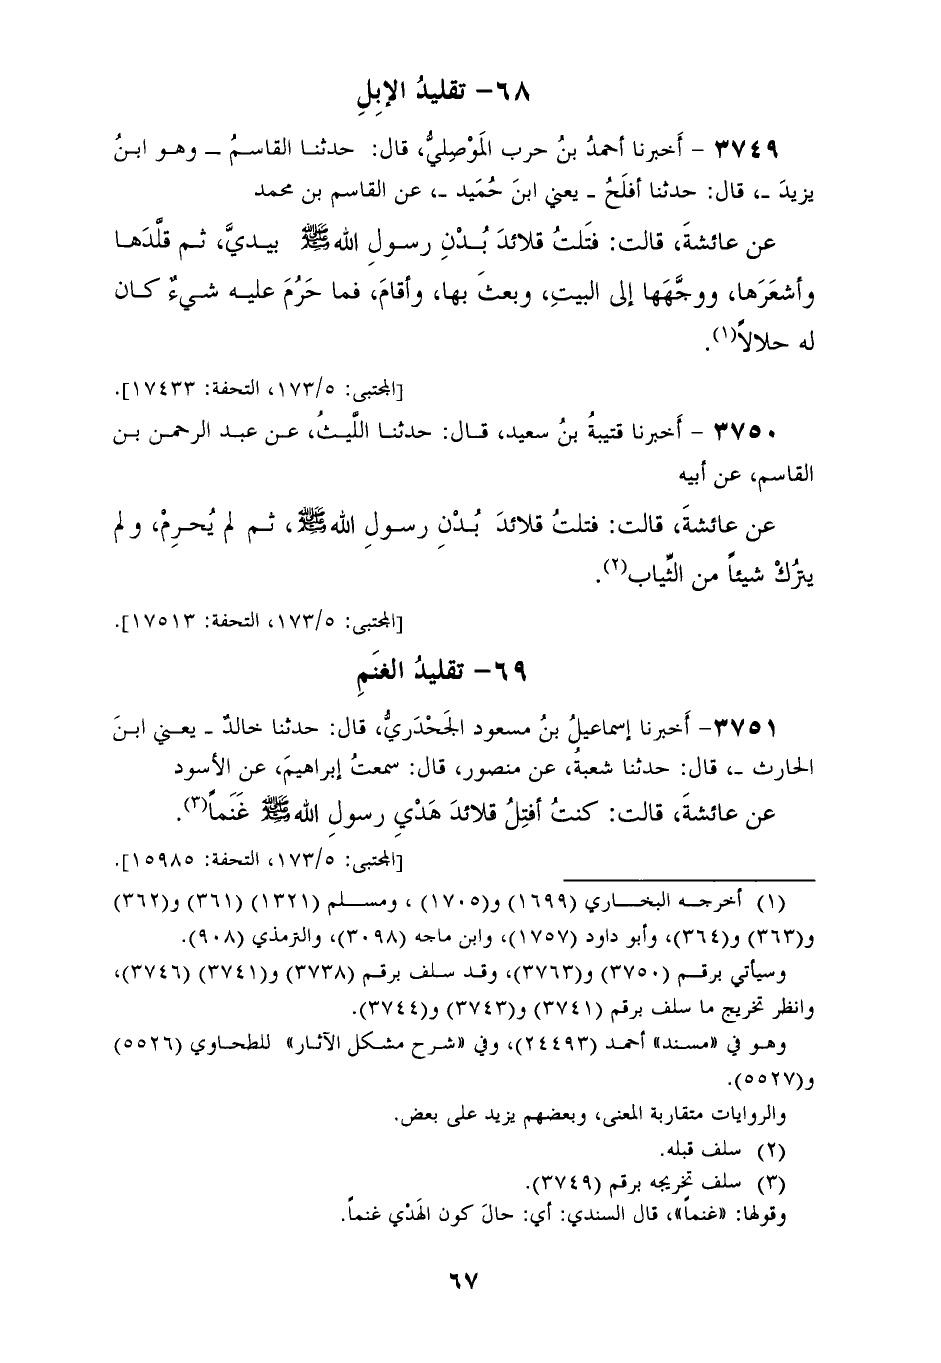 ٦٨- تقليدُ الإبِلِ
٣٧٤٩ - أَخبرنا أحمدُ بنُ حرب المَوْصِليُّ، قال: حدثنـا القاسـمُ ــ وهـو ابـنُ
يزيدَ ــ، قال: حدثنا أفلَحُ ــ يعني ابنَ حُمَيد ــ، عن القاسم بن محمد
عن عائشةَ، قالت: فتَلتُ قلائدَ بُـدْنِ رسـولِ اللهﷺ بيـديَّ، ثـم قلَّدَهـا
وأشعَرَها، ووجَّهَها إلى البيتِ، وبعثَ بها، وأقامَ، فما حَرُمَ عليـه شـيءٌ كـان
له حلالاً(١).
[المجتبى: ١٧٣/٥، التحفة: ١٧٤٣٣].
٣٧٥٠ - أَخبرنا قتيبةُ بنُ سعيد، قـال: حدثنـا اللَّيـثُ، عـن عبـد الرحمـن بـن
القاسم، عن أبيه
عن عائشةَ، قالت: فتلتُ قلائدَ بُـدْنِ رسـولِ اللهﷺ، ثـم لم يُحـرِمْ، و لم
يترُكْ شيئاً من الثِّياب(٢).
[المجتبى: ١٧٣/٥، التحفة: ١٧٥١٣].
٦٩- تقليدُ الغنَمِ
٣٧٥١- أَخبرنا إسماعيلُ بنُ مسعود الجَحْدَريُّ، قال: حدثنا خالدٌ ــ يعـني ابـنَ
الحارث ــ، قال: حدثنا شعبةُ، عن منصور، قال: سمعتُ إبراهيمَ، عن الأسود
عن عائشةَ، قالت: كنتُ أفتِلُ قلائدَ هَدْيِ رسولِ اللهﷺ غَنَماً(٣).
[المجتبى: ١٧٣/٥، التحفة: ١٥٩٨٥].
(١) أخرجـه البخـاري (١٦٩٩) و(١٧٠٥) ، ومسـلم (١٣٢١) (٣٦١) و(٣٦٢)
و(٣٦٣) و(٣٦٤)، وأبو داود (١٧٥٧)، وابن ماجه (٣٠٩٨)، والترمذي (٩٠٨).
وسيأتي برقـم (٣٧٥٠) و(٣٧٦٣)، وقـد سـلف برقـم (٣٧٣٨) و(٣٧٤١) (٣٧٤٦)،
وانظر تخريج ما سلف برقم (٣٧٤١) و(٣٧٤٣) و(٣٧٤٤).
وهـو في «مسـند» أحمـد (٢٤٤٩٣)، وفي «شـرح مشـكل الآثـار» للطحـاوي (٥٥٢٦)
و(٥٥٢٧).
والروايات متقاربة المعنى، وبعضهم يزيد على بعض.
(٢) سلف قبله.
(٣) سلف تخريجه برقم (٣٧٤٩).
وقولها: «غنماً»، قال السندي: أي: حالَ كون الهَدْي غنماً.
٦٧